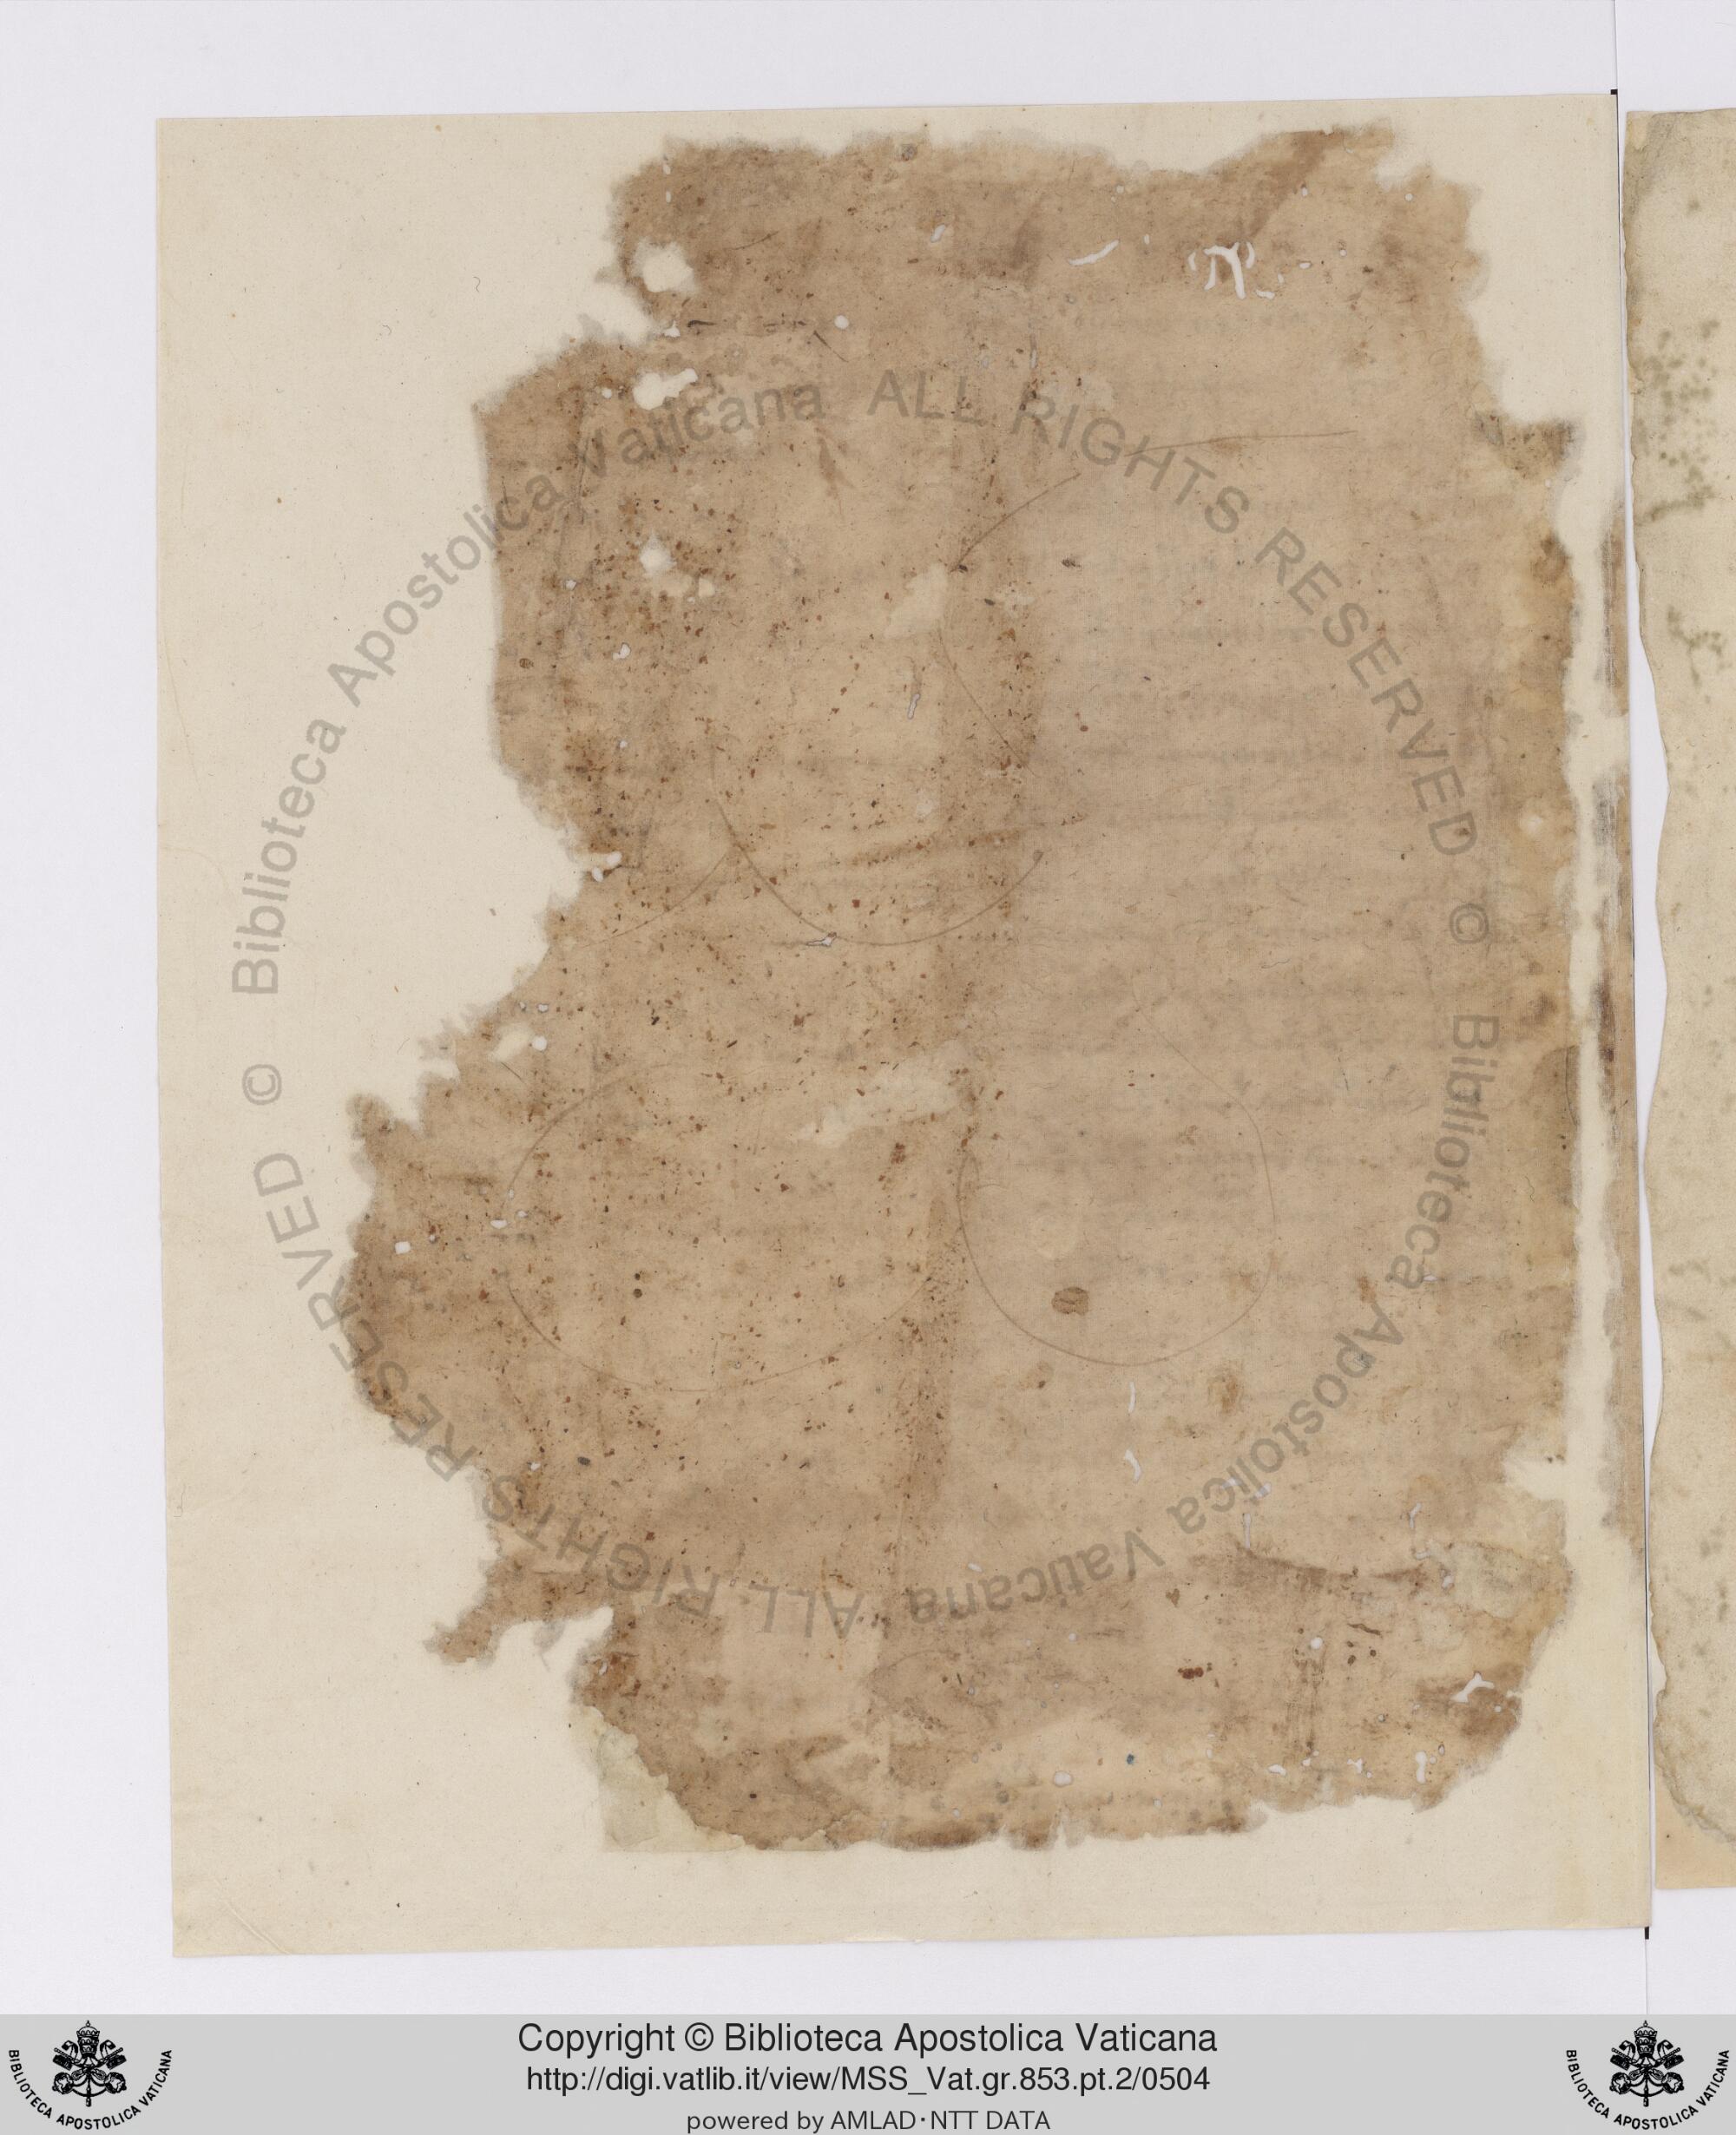 © Biblioteca Apostolica Vaticana ALL RIGHTS RESERVED © Biblioteca Apostolica Vaticana ALL RIGHTS RESERVED
Copyright © Biblioteca Apostolica Vaticana
http://digi.vatlib.it/view/MSS_Vat.gr.853.pt.2/0504
powered by AMLAD·NTT DATA
BIBLIOTECA APOSTOLICA VATICANA
BIBLIOTECA APOSTOLICA VATICANA